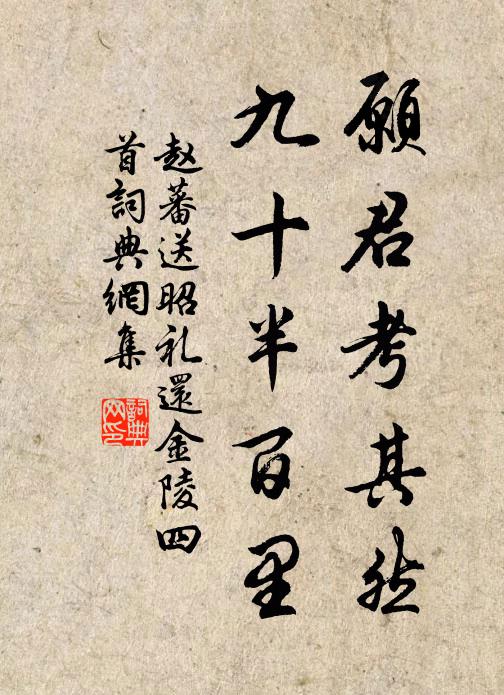 願君考其然
九十半百里
赵蕃送昭礼還金陵四
首詞典網集
詞典
网印